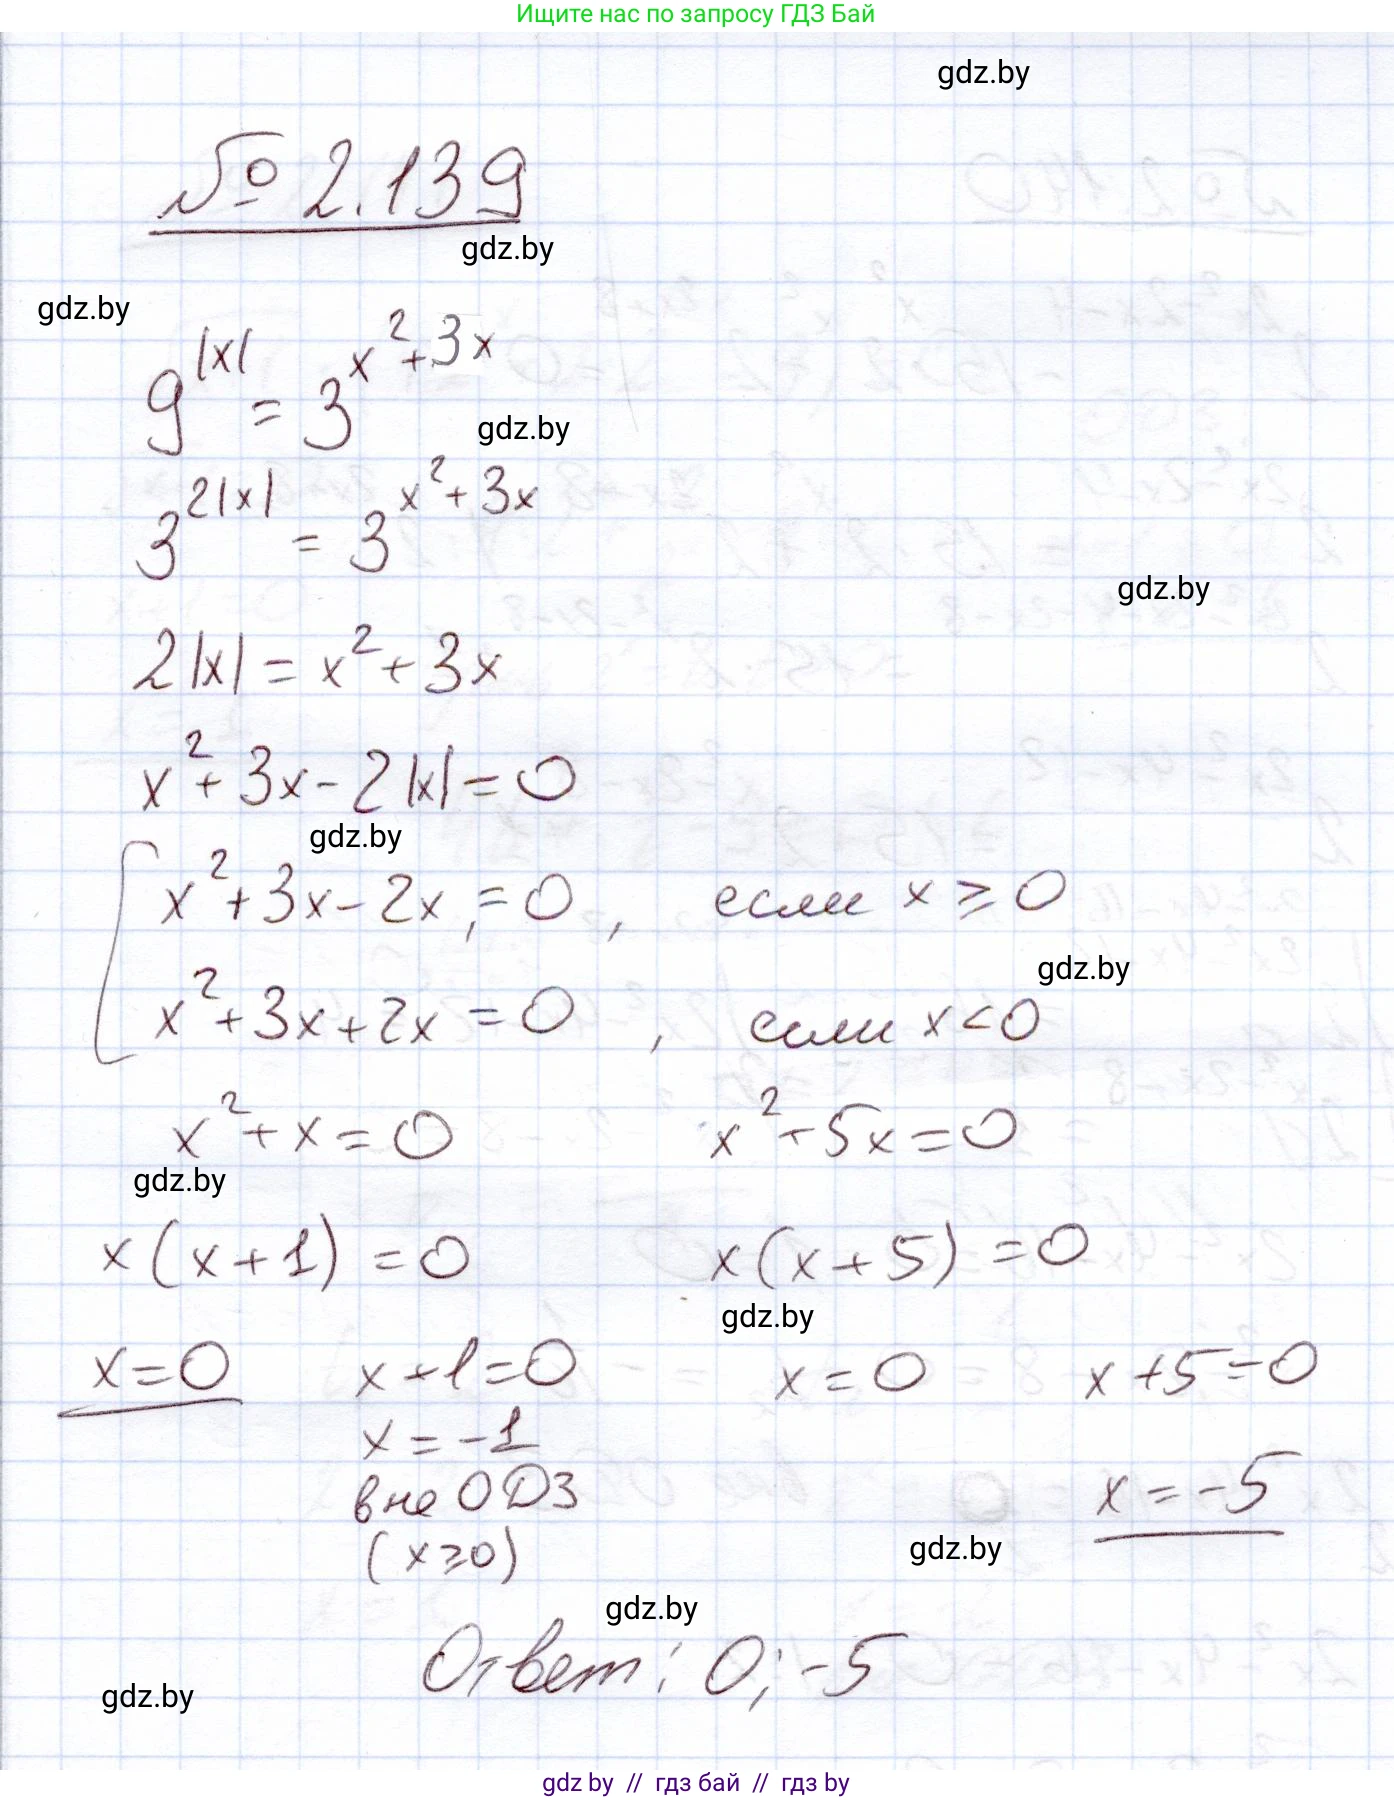 Ищите нас по запросу ГДЗ Бай
gdz.by
№ 2.139
gdz.by
gdz.by
9^|x| = 3^(x²+3x)
gdz.by
3^(2|x|) = 3^(x²+3x)
gdz.by
2|x| = x² + 3x
x² + 3x - 2|x| = 0
gdz.by
x² + 3x - 2x = 0, если x ≥ 0
gdz.by
x² + 3x + 2x = 0, если x < 0
x² + x = 0 x² + 5x = 0
gdz.by
x(x+1) = 0 x(x+5) = 0
gdz.by
x = 0 x+1=0 x = 0 x+5=0
x = -1
вне ОДЗ x = -5
(x ≥ 0) gdz.by
gdz.by
Ответ: 0; -5
gdz.by
gdz by // гдз бай // гдз by